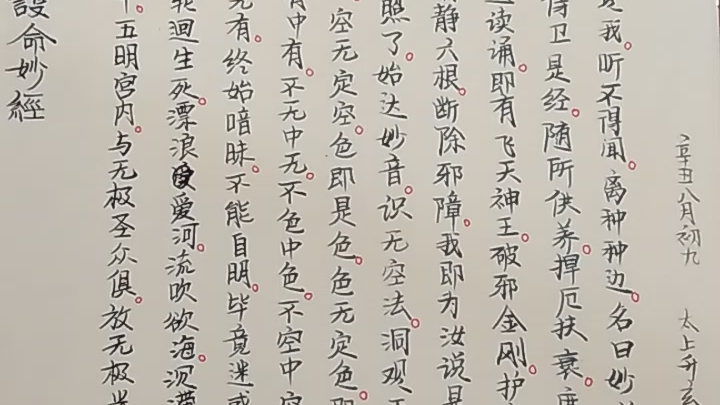 命妙經
五明宫内。与无极圣众俱。放无极
迴生死。漂浪爱河。流吹欲海。沉滞
有。终始暗昧。不能自明。毕竟迷惑
中有。不无中无。不色中色。不空中空
空无定空。色即是色。色无定色。即
照了。始达妙音。识无空法。洞观
静六根。断除邪障。我即为汝说是
读诵。即有飞天神王。破邪金刚。护
侍卫是经。随所供养。捍厄扶衰。度
我。听不得闻。离种种边。名曰妙
辛丑八月初九 太上升玄